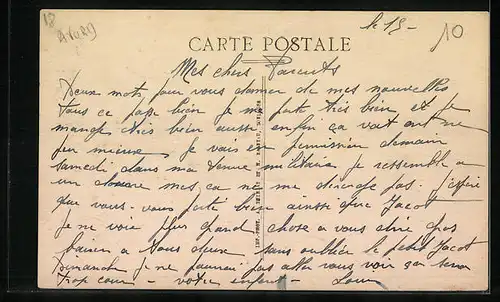 18
AVORD
10
le 15-
CARTE POSTALE
Mes chers Parents
Deux mots pour vous donner de mes nouvelles
tous ce passe bien je me porte très bien et je
mange très bien aussi enfin ça vait on ne
peu mieux je vais en permission demain
samedi dans ma tenue militaire je ressemble a
un mes ça ne me dérange pas. J'espère
que vous-vous porté bien ainsi que Jacot
Je ne voie plus grand chose a vous dire gros
baiser a tous deux sans oublier le petit Jacot
Dimanche je ne pourrai pas aller vous voir ça sera
trop cour - votre enfant - Lou